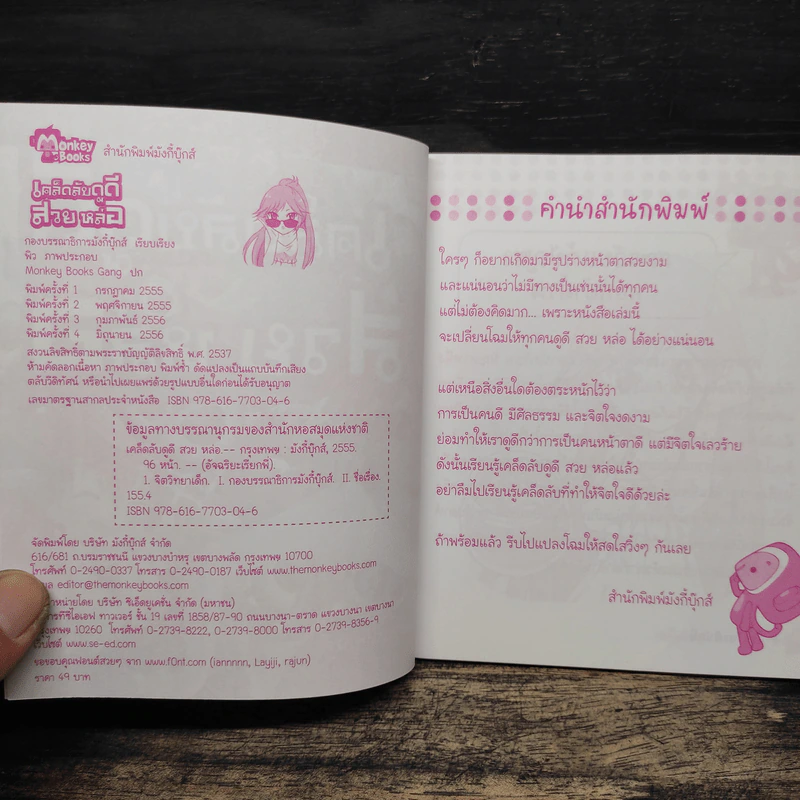 Monkey Books
สำนักพิมพ์มังกี้บุ๊กส์
เคล็ดลับดูดี
สวย หล่อ
กองบรรณาธิการมังกี้บุ๊กส์ เรียบเรียง
พิว ภาพประกอบ
Monkey Books Gang ปก
พิมพ์ครั้งที่ 1 กรกฎาคม 2555
พิมพ์ครั้งที่ 2 พฤศจิกายน 2555
พิมพ์ครั้งที่ 3 กุมภาพันธ์ 2556
พิมพ์ครั้งที่ 4 มิถุนายน 2556
สงวนลิขสิทธิ์ตามพระราชบัญญัติลิขสิทธิ์ พ.ศ. 2537
ห้ามคัดลอกเนื้อหา ภาพประกอบ พิมพ์ซ้ำ ดัดแปลงเป็นแถบบันทึกเสียง
ตลับวิดีทัศน์ หรือนำไปเผยแพร่ด้วยรูปแบบอื่นใดก่อนได้รับอนุญาต
เลขมาตรฐานสากลประจำหนังสือ ISBN 978-616-7703-04-6
ข้อมูลทางบรรณานุกรมของสำนักหอสมุดแห่งชาติ
เคล็ดลับดูดี สวย หล่อ.-- กรุงเทพฯ : มังกี้บุ๊กส์, 2555.
96 หน้า. -- (อัจฉริยะเรียกพี่).
1. จิตวิทยาเด็ก. I. กองบรรณาธิการมังกี้บุ๊กส์. II. ชื่อเรื่อง.
155.4
ISBN 978-616-7703-04-6
จัดพิมพ์โดย บริษัท มังกี้บุ๊กส์ จำกัด
616/681 ถ.บรมราชชนนี แขวงบางบำหรุ เขตบางพลัด กรุงเทพฯ 10700
โทรศัพท์ 0-2490-0337 โทรสาร 0-2490-0187 เว็บไซต์ www.themonkeybooks.com
editor@themonkeybooks.com
จำหน่ายโดย บริษัท ซีเอ็ดยูเคชั่น จำกัด (มหาชน)
ทีซีไอเอฟ ทาวเวอร์ ชั้น 19 เลขที่ 1858/87-90 ถนนบางนา-ตราด แขวงบางนา เขตบางนา
กรุงเทพฯ 10260 โทรศัพท์ 0-2739-8222, 0-2739-8000 โทรสาร 0-2739-8356-9
เว็บไซต์ www.se-ed.com
ขอขอบคุณฟอนต์สวยๆ จาก www.f0nt.com (iannnnn, Layiji, rajun)
ราคา 49 บาท
คำนำสำนักพิมพ์
ใครๆ ก็อยากเกิดมามีรูปร่างหน้าตาสวยงาม
และแน่นอนว่าไม่มีทางเป็นเช่นนั้นได้ทุกคน
แต่ไม่ต้องคิดมาก... เพราะหนังสือเล่มนี้
จะเปลี่ยนโฉมให้ทุกคนดูดี สวย หล่อ ได้อย่างแน่นอน
แต่เหนือสิ่งอื่นใดต้องตระหนักไว้ว่า
การเป็นคนดี มีศีลธรรม และจิตใจงดงาม
ย่อมทำให้เราดูดีกว่าการเป็นคนหน้าตาดี แต่มีจิตใจเลวร้าย
ดังนั้นเรียนรู้เคล็ดลับดูดี สวย หล่อแล้ว
อย่าลืมไปเรียนรู้เคล็ดลับที่ทำให้จิตใจดีด้วยล่ะ
ถ้าพร้อมแล้ว รีบไปแปลงโฉมให้สดใสวิ้งๆ กันเลย
สำนักพิมพ์มังกี้บุ๊กส์